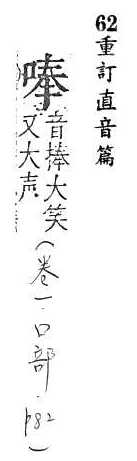 62重訂直音篇
唪
音捧大笑
又大声
(卷一口部·p82)